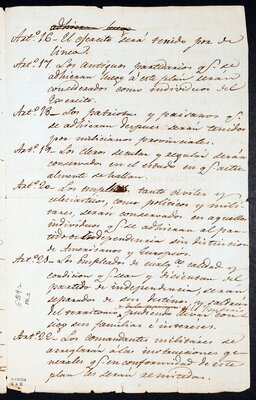 adhieran luego
Artº 16 - El egercito será tenido por de
linea.
Artº 17 Los antiguos partidarios q.e se
adhieran luego á este plan serán
considerados como individuos del
Egercito.
Artº 18 - Los patriotas y paisanos q.e
se adhieran despues serán tenidos
por milicianos provinciales.
Artº 19 - Los cleros secular y regular serán
conservados en el estado en q.e actu
almente se hallan.
Artº 20 - Los empleos tanto civiles y
eclesiasticos, como politicos y mili-
tares, serán conservados en aquellos
individuos q.e se adhieran al par-
independencia sin distincion
de Americanos y Europeos.
Artº 21 - Los Empleados de
condicion q.e sean y disientan del
partido de independencia, serán
separados de sus destinos, y saldrán
del territorio, pudiendo llevar con-
sigo sus familias e intereses.
Artº 22 - Los comandantes militares se
arreglarán a las instrucciones gene-
rales q.e en conformidad de este
plan les seran remitidas.
GARCIA